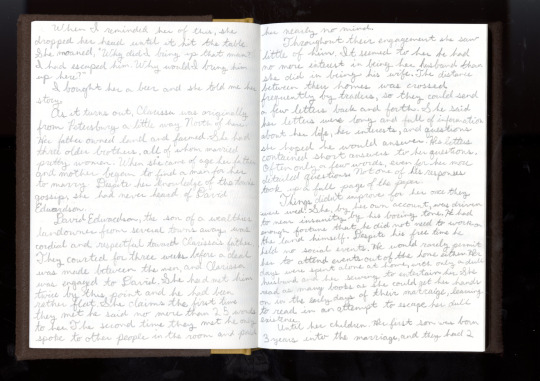 When I reminded her of this, she
dropped her head until it hit the table.
She moaned, "Why did I bring up that man?
I had escaped him. Why would I bring him
up here?"
I bought her a beer and she told me her
story.
As it turns out, Clarissa was originally
from Petersburg a little way North of here.
Her father owned land and farmed. She had
three older brothers, all of whom married
pretty women. When she came of age her father
and mother began to find a man for her
to marry. Despite her knowledge of the town
gossip, she had never heard of David
Edwardson.
David Edwardson, the son of a wealthy
landowner from several towns away was
cordial and respectful toward Clarissa's father.
They courted for three weeks before a deal
was made between the men, and Clarissa
was engaged to David. She had met him
twice by this point and he had been
rather flat. She claims the first time
they met he said no more than 25 words
to her. The second time they met he only
spoke to other people in the room and paid
her nearly no mind.
Throughout their engagement she saw
little of him. It seemed to her he had
no more interest in being her husband than
she did in being his wife. The distance
between their homes was crossed
frequently by traders, so they could send
a few letters back and forth. She said
her letters were long and full of information
about her life, her interests, and questions
she hoped he would answer. His letters
contained short answers to her questions.
Often only a few words, even for her more
detailed questions. Not one of his responses
took up a full page of the paper.
Things didn't improve for her once they
were wed. She, by his own account, was driven
to near insanity by his boring tone. He had
enough fortune that he did not need to work
the land himself. Despite his free time he
held no social events. He would rarely permit
her to attend events out of the home either. Her
days were spent alone at home, with only a dull
husband and her sewing to entertain her. She
read as many books as she could get her hands
on in the early days of their marriage, learning
to read in an attempt to escape her dull
existence.
Until her children. Her first son was born
3 years into the marriage, and they had 2